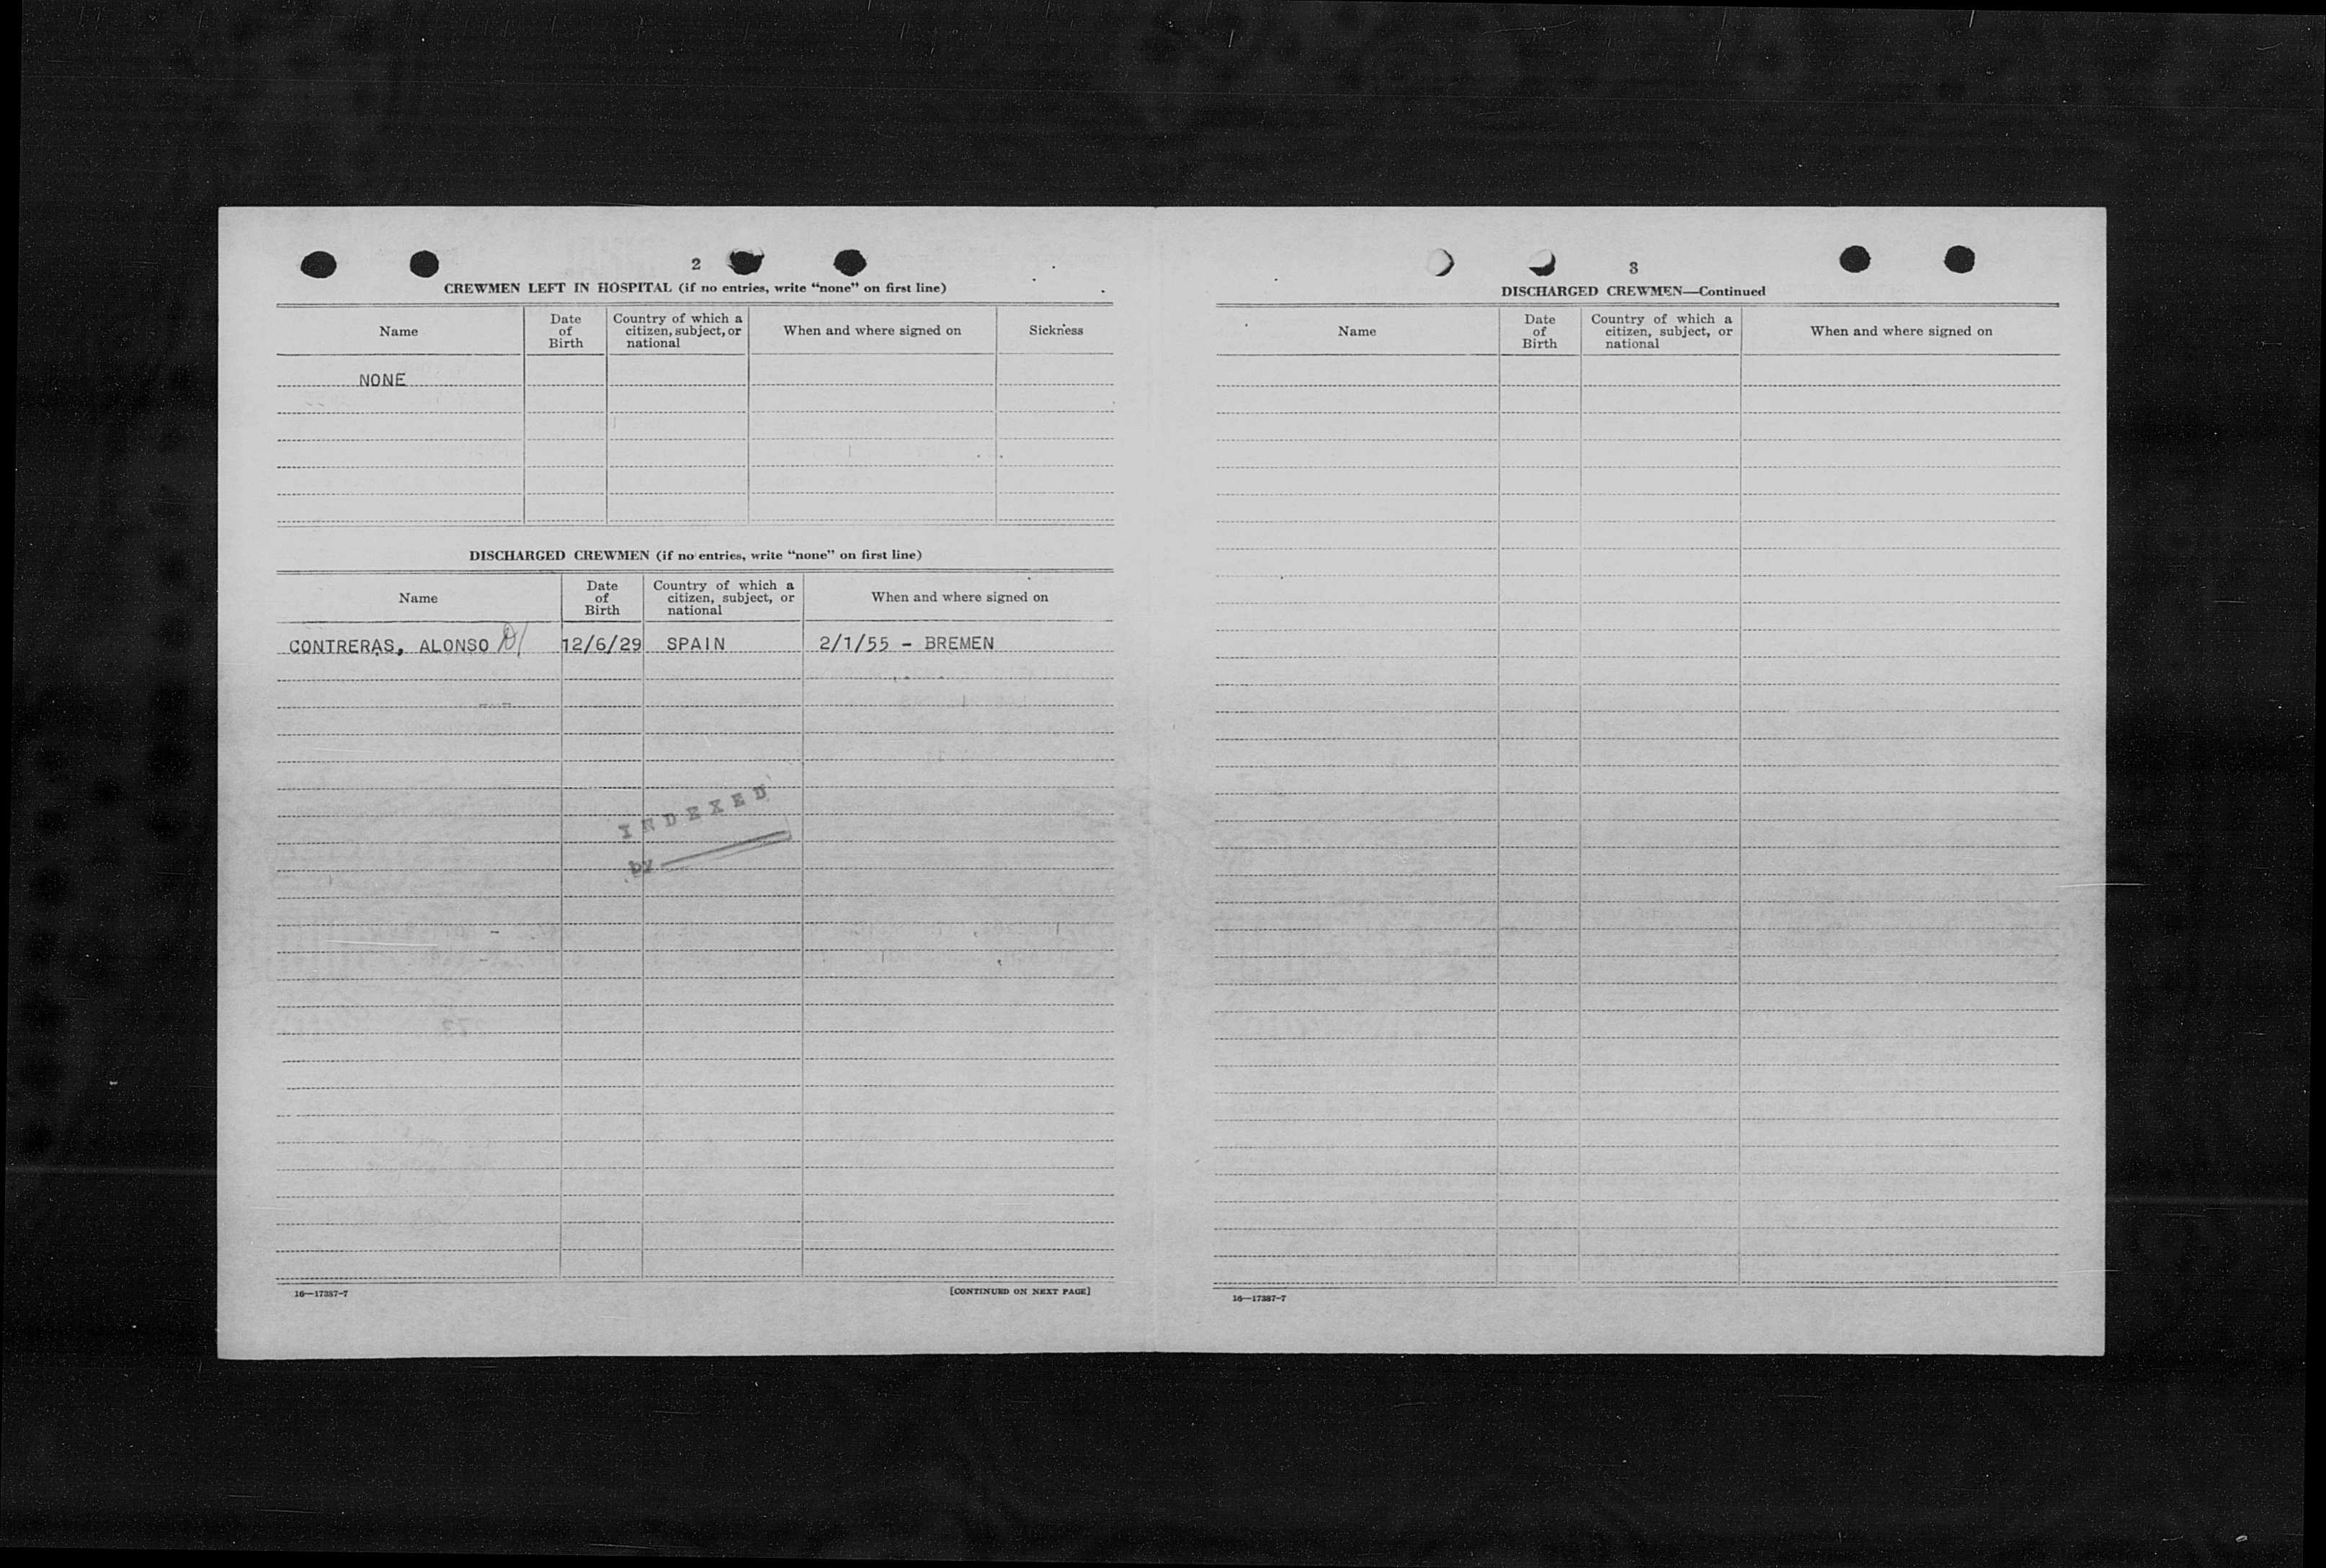 2
CREWMEN LEFT IN HOSPITAL (if no entries, write “none” on first line)
Name
Date of Birth
Country of which a citizen, subject, or national
When and where signed on
Sickness
NONE
DISCHARGED CREWMEN (if no entries, write “none” on first line)
Name
Date of Birth
Country of which a citizen, subject, or national
When and where signed on
CONTRERAS, ALONSO 12/6/29 SPAIN 2/1/55 - BREMEN
INDEXED
by
16—17387-7
[CONTINUED ON NEXT PAGE]
3
DISCHARGED CREWMEN—Continued
Name
Date of Birth
Country of which a citizen, subject, or national
When and where signed on
16—17387-7